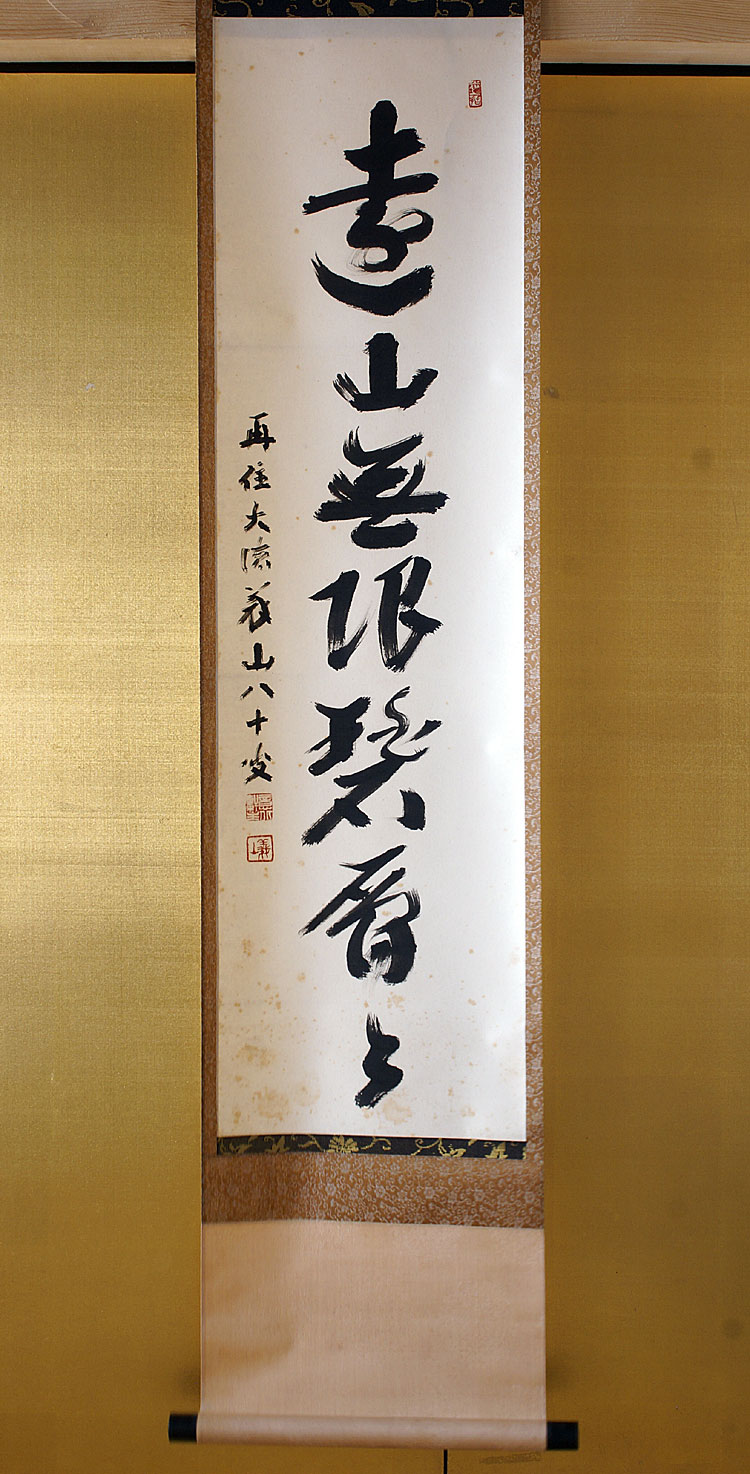 遠山無限碧層々
再住大徳義山八十叟